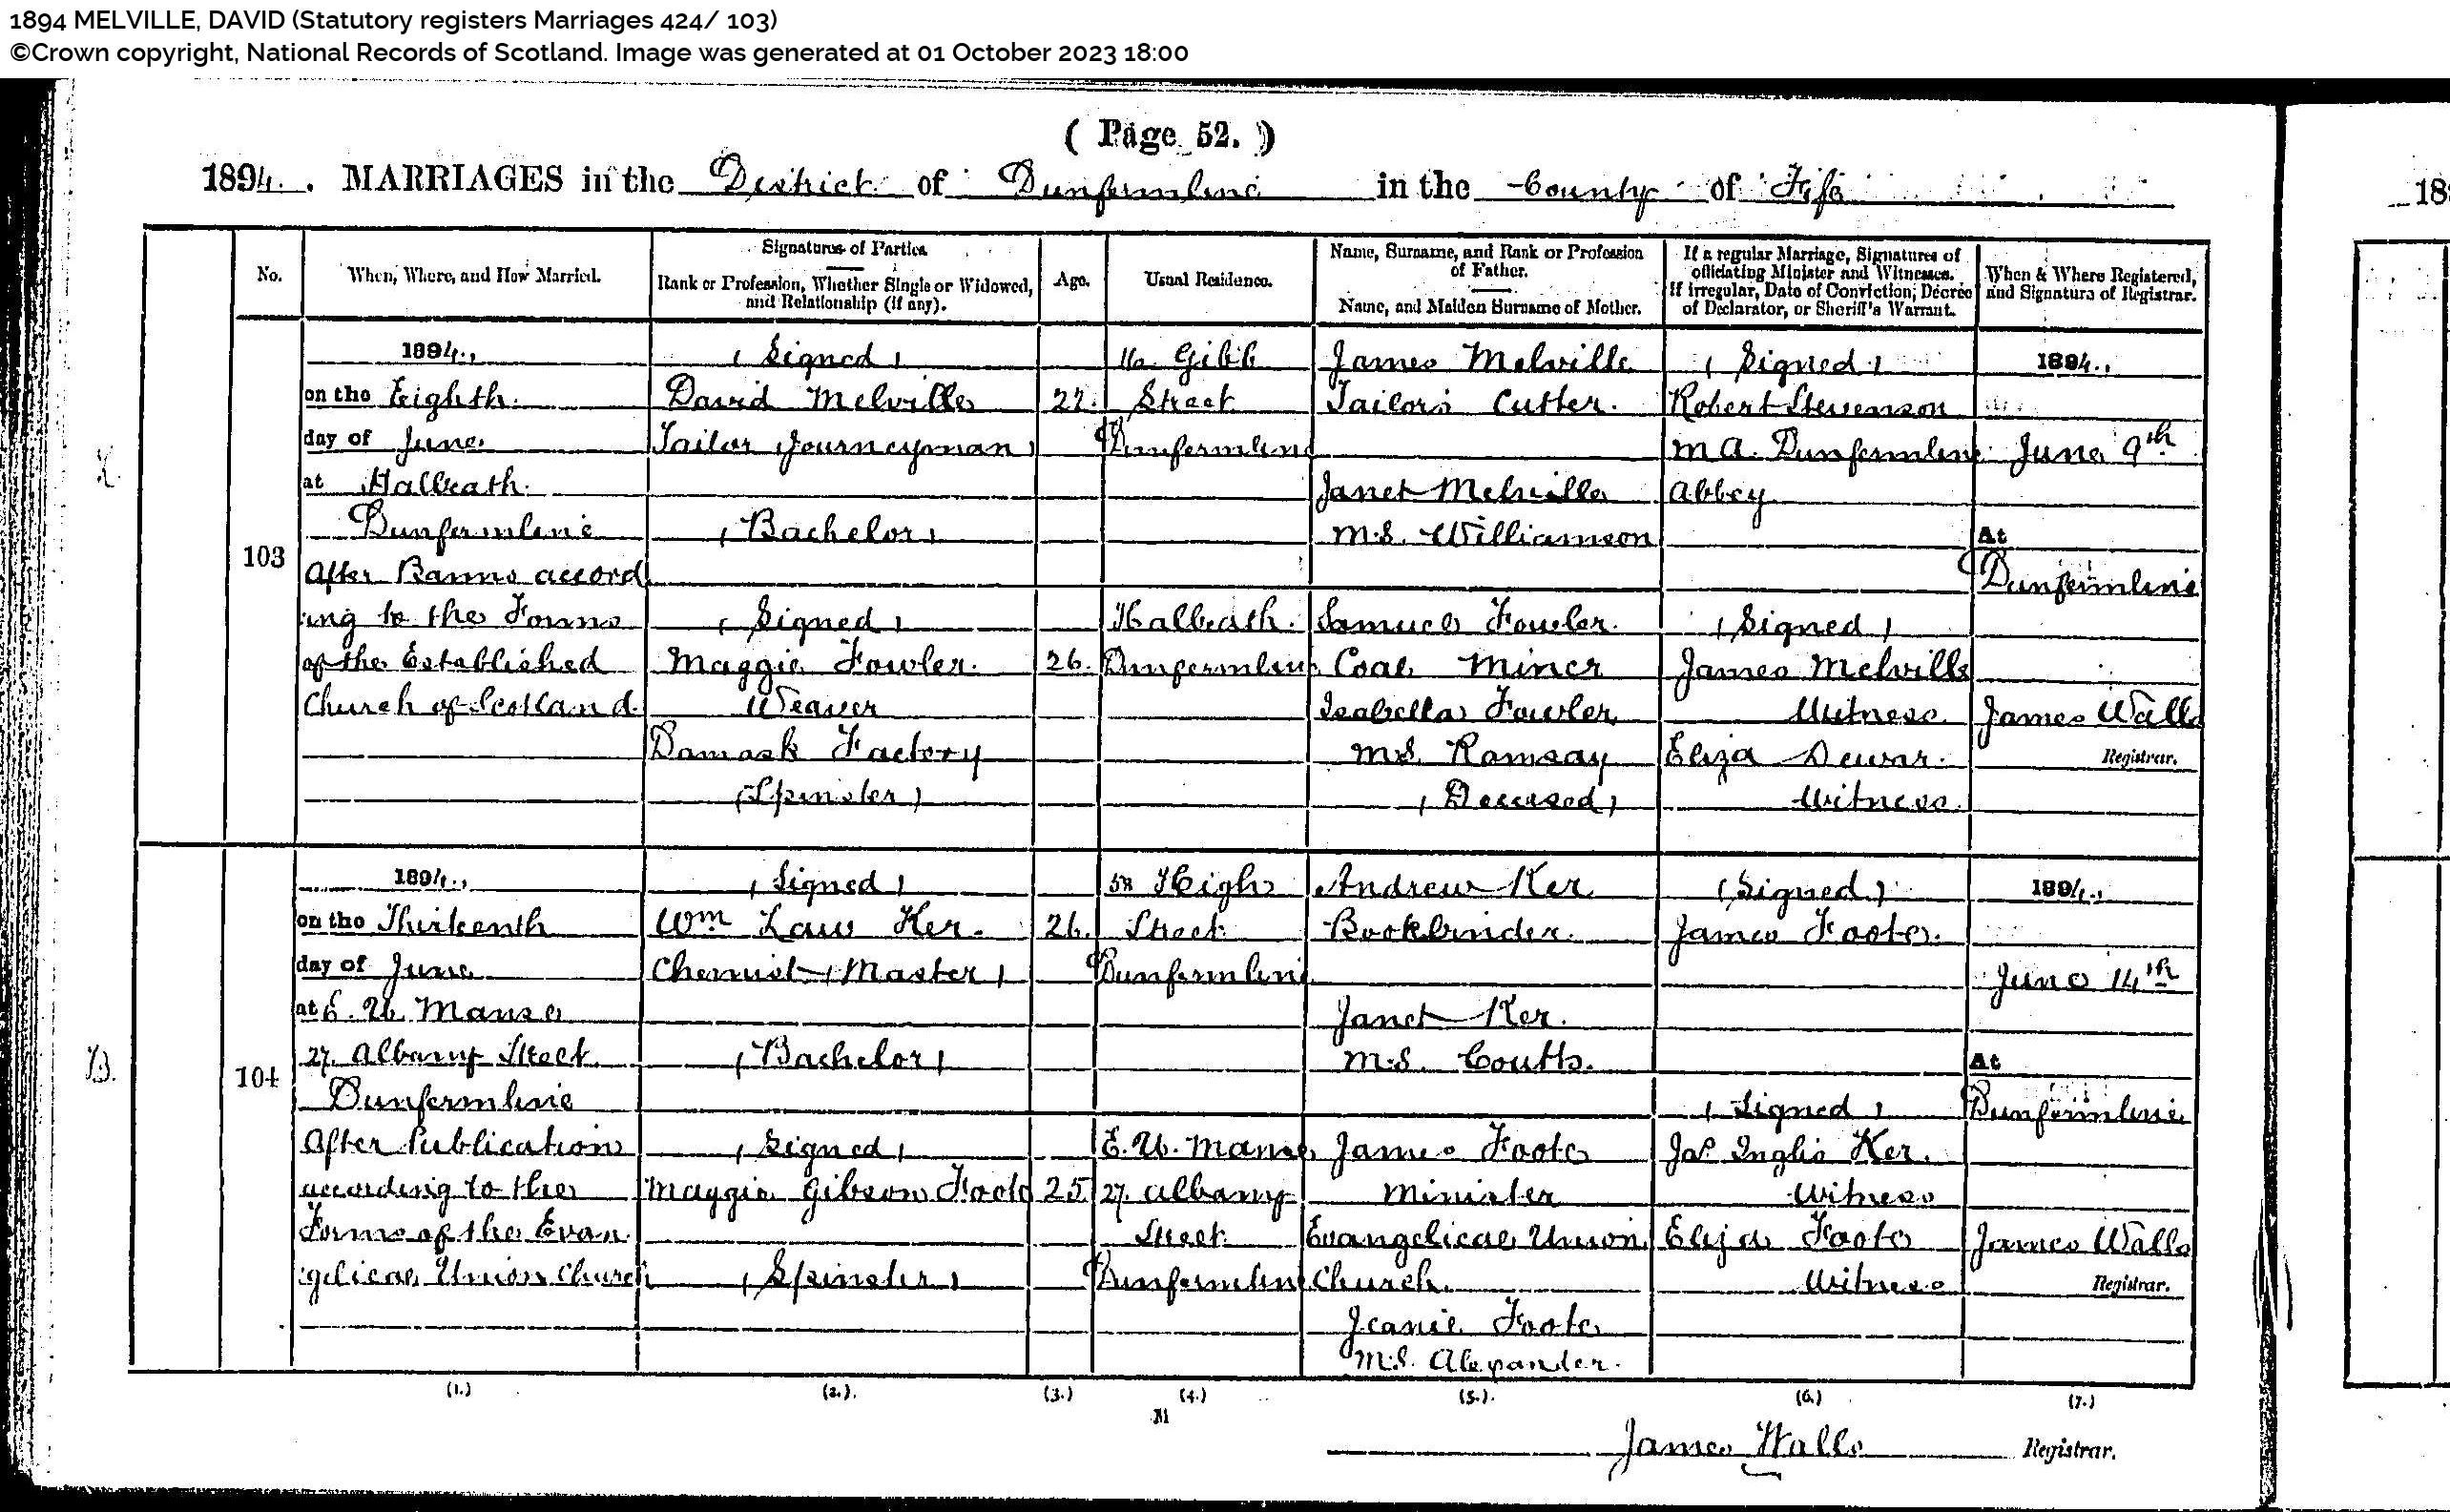 1894 MELVILLE, DAVID (Statutory registers Marriages 424/ 103)
©Crown copyright, National Records of Scotland. Image was generated at 01 October 2023 18:00
( Page 52. )
1894. MARRIAGES in the District of Dunfermline in the County of Fife
18
No.
When, Where, and How Married.
Signatures of Parties
Rank or Profession, Whether Single or Widowed,
and Relationship (if any).
Age.
Usual Residence.
Name, Surname, and Rank or Profession
of Father.
Name, and Maiden Surname of Mother.
If a regular Marriage, Signatures of
officiating Minister and Witnesses.
If irregular, Date of Conviction, Decree
of Declarator, or Sheriff's Warrant.
When & Where Registered,
and Signature of Registrar.
103
1894.,
on the Eighth
day of June
at Halbeath
Dunfermline
After Banns accord
:ing to the Forms
of the Established
Church of Scotland.
(Signed)
David Melville
Tailor (Journeyman)
(Bachelor)
(Signed)
Maggie Fowler.
Weaver
Damask Factory
(Spinster)
27.
26.
Gibb
Street
Dunfermline
Halbeath.
Dunfermline
James Melville
Tailor's Cutter.
Janet Melville
M.S. Williamson
Samuel Fowler.
Coal Miner
Isabella Fowler
M.S. Ramsay
(Deceased)
(Signed)
Robert Stevenson
M A. Dunfermline
Abbey
(Signed)
James Melville
Witness
Eliza Dewar.
Witness.
1894.,
June 9th
At
Dunfermline
James Walls
Registrar.
104
1894.,
on the Thirteenth
day of June
at E. U. Manse
27. Albany Street
Dunfermline
After Publication
according to the
Forms of the Evan
:gelical Union Church
(Signed)
Wm Law Ker.
Chemist (Master)
(Bachelor)
(Signed)
Maggie Gibson Foote
(Spinster)
26.
25
58 High
Street
Dunfermline
E. U. Manse
27. Albany
Street
Dunfermline
Andrew Ker
Bookbinder.
Janet Ker.
M.S. Coutts.
James Foote
Minister
Evangelical Union
Church.
Jeanie Foote
M.S. Alexander.
(Signed)
James Foote.
(Signed)
Jas. Inglis Ker.
Witness
Eliza Foote
Witness
1894.,
June 14th
At
Dunfermline
James Walls
Registrar.
(1.) (2.) (3.) (4.) (5.) (6.) (7.)
M
James Walls Registrar.